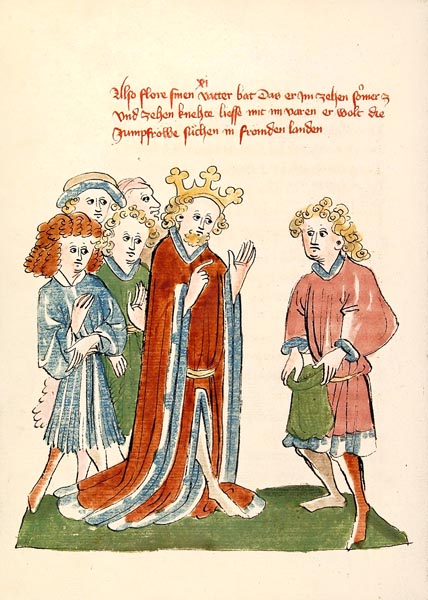 xi
Also flore sinen vatter bat Das er im zehen somer
Und zehen knehte liesse mit im varen er wolt die
Jumpfrowe suchen in fromden landen